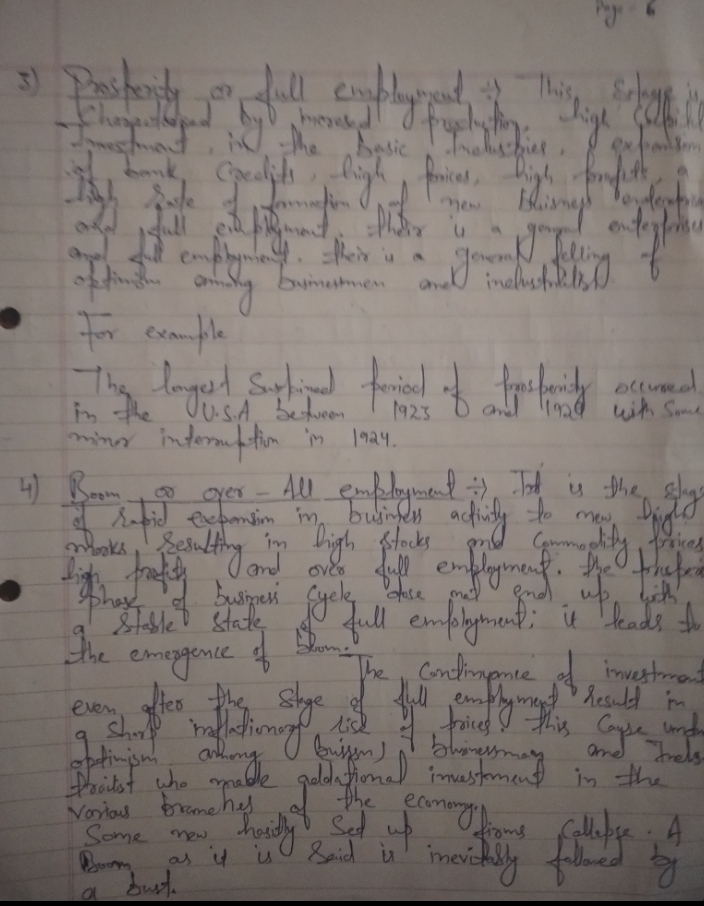 Page - 6
3) Prosperity or full employment ÷) This Stage is
Charactersed by incresed production, high Capital
Investment in the basic Industries, expansion
of bank Credits, high prices, high profits, a
high Rate of formation of new Buisness enterprises
and full employment. Their is a general enterprises
and full employment. Their is a general felling of
optimism among businessmen and industrilist
For example
The longest Sustained period of prosperity occured
in the U.S.A between 1923 and 1929 with Some
minor interruption in 1924.
4) Boom or over - All employment ÷) It is the stage
of Rapid expansion in business activity to new high
marks Resulting in high Stocks and Commodity prices
high profits and over full employment. The
phase of business Cycle dose not end up with
a Stable State of full employment; it leads to
the emergence of boom.
The Continuance of investment
even after the Stage of full employment Result in
a Sharp inflationary rise of prices. This Cause undu
optimism among businessmen and
who made additional investment in the
various branches of the economy.
Some new hasidly Set up firms Collapse. A
Boom as it is Said is inevitably followed by
a bust.